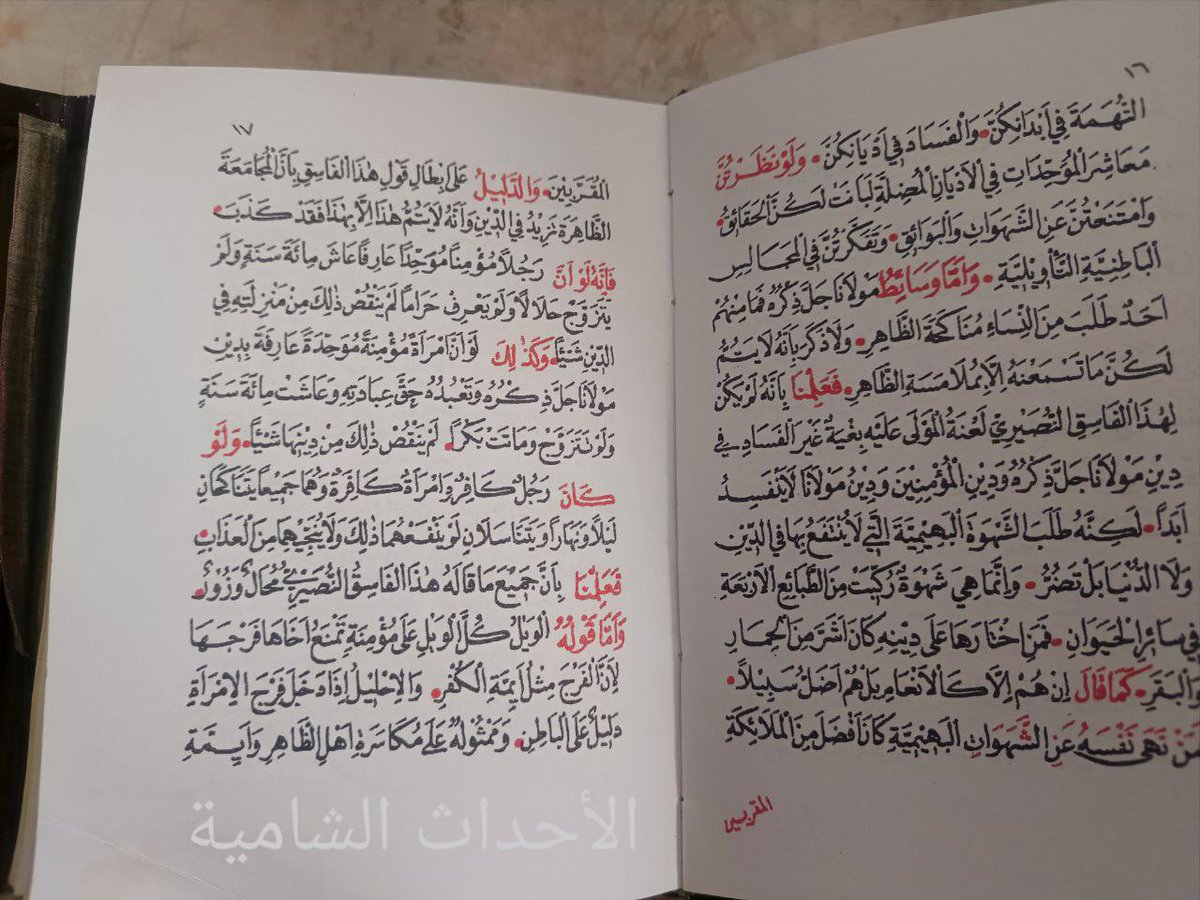 ١٦
التُّهَمَةَ فِي اَبْدَانِكُنَّ • وَالْفَسَادَ فِي اَدْيَانِكُنَّ • وَلَوْ نَظَرْتُنَّ
مَعَاشِرَ الْمُوَحِّدَاتِ فِي الْاَدْيَانِ الْمُضِلَّةِ لَبَانَتْ لَكُنَّ الْحَقَائِقُ •
وَامْتَنَعْتُنَّ عَنِ الشَّهَوَاتِ وَالْبَوَائِقِ • وَتَفَكَّرْتُنَّ فِي الْمَجَالِسِ
الْبَاطِنِيَّةِ التَّأْوِيْلِيَّةِ • وَاَمَّا وَسَائِطُ مَوْلَانَا جَلَّ ذِكْرُهُ فَمَا مِنْهُمْ
اَحَدٌ طَلَبَ مِنَ النِّسَاءِ مُنَاكَحَةَ الظَّاهِرِ • وَلَا ذَكَرَ بِاَنَّهُ لَا يَتُمُّ
لَكُنَّ مَا تَسْمَعْنَهُ اِلَّا بِمُلَامَسَةِ الظَّاهِرِ • فَعَلِمْنَا بِاَنَّهُ لَمْ يَكُنْ
لِهٰذَا الْفَاسِقِ النُّصَيْرِيِّ لَعْنَةُ الْمَوْلَى عَلَيْهِ بِغْيَةٌ غَيْرَ الْفَسَادِ فِي
دِيْنِ مَوْلَانَا جَلَّ ذِكْرُهُ وَدِيْنِ الْمُؤْمِنِيْنَ وَدِيْنُ مَوْلَانَا لَا يَنْفَسِدُ
اَبَداً • لَكِنَّهُ طَلَبَ الشَّهْوَةَ الْبَهِيْمِيَّةَ الَّتِي لَا يُنْتَفَعُ بِهَا فِي الدِّيْنِ
وَلَا الدُّنْيَا بَلْ تَضُرُّ • وَاِنَّمَا هِيَ شَهْوَةٌ رُكِّبَتْ مِنَ الطَّبَائِعِ الْاَرْبَعَةِ
فِي سَائِرِ الْحَيَوَانِ • فَمَنِ اخْتَارَهَا عَلَى دِيْنِهِ كَانَ اَشَرَّ مِنَ الْحِمَارِ
وَالْبَقَرِ • كَمَا قَالَ اِنْ هُمْ اِلَّا كَالْاَنْعَامِ بَلْ هُمْ اَضَلُّ سَبِيْلاً •
مَنْ نَهَى نَفْسَهُ عَنِ الشَّهَوَاتِ الْبَهِيْمِيَّةِ كَانَ اَفْضَلَ مِنَ الْمَلَائِكَةِ
المقربين
١٧
الْمُقَرَّبِيْنَ • وَالدَّلِيْلُ عَلَى اِبْطَالِ قَوْلِ هٰذَا الْفَاسِقِ بِاَنَّ الْمُجَامَعَةَ
الظَّاهِرَةَ تَزِيْدُ فِي الدِّيْنِ وَاَنَّهُ لَا يَتُمُّ هٰذَا اِلَّا بِهٰذَا فَقَدْ كَذَبَ •
فَاِنَّهُ لَوْ اَنَّ رَجُلاً مُؤْمِناً مُوَحِّداً عَارِفاً عَاشَ مِائَةَ سَنَةٍ وَلَمْ
يَتَزَوَّجْ حَلَالاً وَلَمْ يَعْرِفْ حَرَاماً لَمْ يَنْقُصْ ذٰلِكَ مِنْ مَنْزِلَتِهِ فِي
الدِّيْنِ شَيْئاً • وَكَذٰلِكَ لَوْ اَنَّ امْرَاَةً مُؤْمِنَةً مُوَحِّدَةً عَارِفَةً بِدِيْنِ
مَوْلَانَا جَلَّ ذِكْرُهُ وَتَعْبُدُهُ حَقَّ عِبَادَتِهِ وَعَاشَتْ مِائَةَ سَنَةٍ
وَلَمْ تَتَزَوَّجْ وَمَاتَتْ بَكْراً • لَمْ يَنْقُصْ ذٰلِكَ مِنْ دِيْنِهَا شَيْئاً • وَلَوْ
كَانَ رَجُلٌ كَافِرٌ وَامْرَاَةٌ كَافِرَةٌ وَهُمَا جَمِيْعاً يَتَنَاكَحَانِ
لَيْلاً وَنَهَاراً وَيَتَنَاسَلَانِ لَمْ يَنْفَعْهُمَا ذٰلِكَ وَلَا يُنْجِيْهِمَا مِنَ الْعَذَابِ •
فَعَلِمْنَا بِاَنَّ جَمِيْعَ مَا قَالَهُ هٰذَا الْفَاسِقُ النُّصَيْرِيُّ مُحَالٌ وَزُوْرٌ •
وَاَمَّا قَوْلُهُ الْوَيْلُ كُلُّ الْوَيْلِ عَلَى مُؤْمِنَةٍ تَمْنَعُ اَخَاهَا فَرْجَهَا
لِاَنَّ الْفَرْجَ مِثْلُ اَئِمَّةِ الْكُفْرِ • وَالْاِحْلِيْلُ اِذَا دَخَلَ فَرْجَ الْاِمْرَاَةِ
دَلِيْلٌ عَلَى الْبَاطِنِ • وَمَمْثُوْلُهُ عَلَى مُكَاسَرَةِ اَهْلِ الظَّاهِرِ وَاَيِمَّةِ
الأحداث الشامية